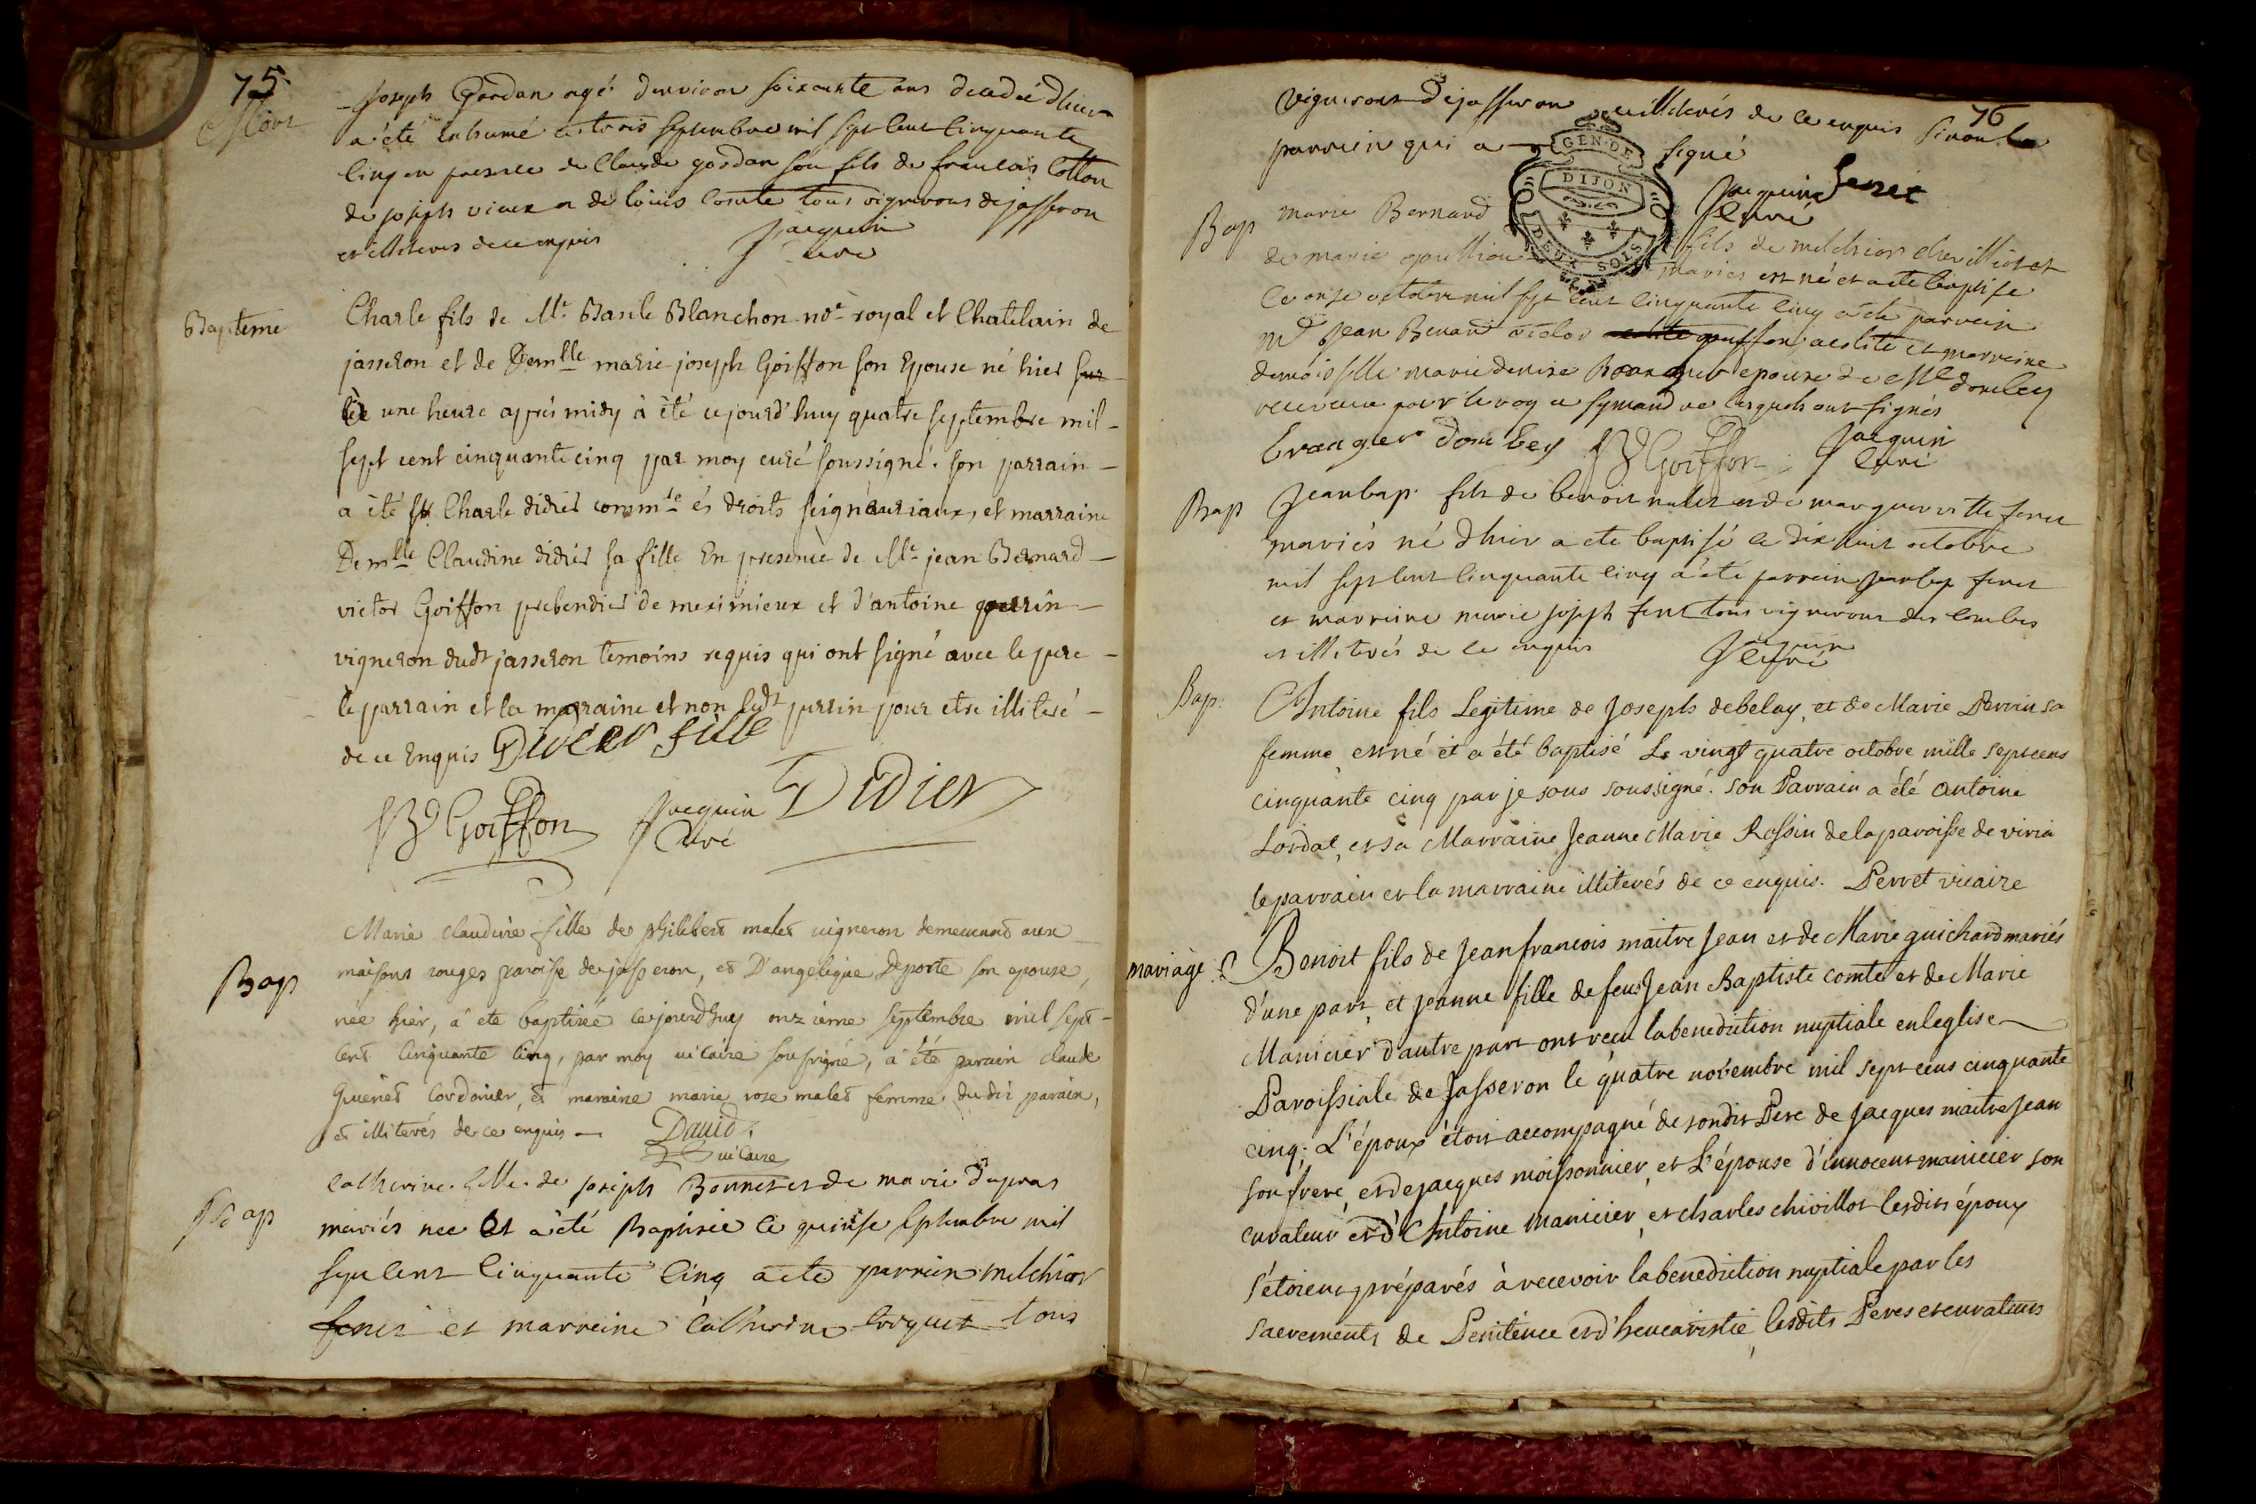 75
Mort
Joseph Gordan agé d'environ soixante ans decedé d'hier
a été inhumé le trois septembre mil sept cent cinquante
cinq en presence de Claude gordan son fils de francois Cotton
de joseph vieux et de loüis Comte tous vignerons de jasseron
et illiteres de ce enquis
Jacquin
curé
Bapteme
Charle fils de Me. Basile Blanchon nore royal et Chatelain de
jasseron et de Demlle marie joseph Goiffon son Epouse né hier sur
les une heure aprés midy à été ce jourd'huy quatre septembre mil
sept cent cinquante cinq par moy curé soussigné. son parrain
a été sr Charle didier commre és droits seigneuriaux, et marraine
Demlle Claudine didier sa fille En presence de Me jean Bernard
victor Goiffon prebendier de meximieux et d'antoine perrin
vigneron dudt jasseron temoins requis qui ont signé avec le pere
le parrain et la marraine et non ledt perrin pour etre illiteré
de ce Enquis Didier fille
JB Goiffon Jacquin Didier
Curé
Bap
Marie claudine fille de philibert malet vigneron demeurant aux
maisons rouges paroisse de jasseron, et D'angelique Deporte son epouse,
née hier, a eté baptisée ce jourd'huy onzieme septembre mil sept
cent cinquante cinq, par moy vicaire soussigné, a été parain claude
quenet cordonier, et maraine marie rose malet femme dudit parain,
et illiterés de ce enquis David
vicaire
Bap
Catherine fille de joseph Bonnet et de marie dupras
mariés nee et a été Baptisée le quinse septembre mil
sept cent cinquante cinq a ete parrein melchior
feret et marreine Catherine troquet tous
76
vignerons de jasseron et illiterés de ce enquis sinon le
parrein qui a signé
GEN. DE
DIJON
DEUX SOLS
Jacquin feret
curé
Bap
marie Bernard fils de melchior chevilliot et
de marie goullion mariés est né et a ete baptise
le onse octobre mil sept cent cinquante cinq a été parrein
Mr Jean Benard victor goiffon acolite et marreine
demoiselle marie denise epouse de Mr dombey
receveur pour le roy a lesquels ont signés
dombey JB Goiffon Jacquin
curé
Bap
Jean bap. fils de benoit malet et de marguerite feret
mariés né d'hier a ete baptisé le dix huit octobre
mil sept cent cinquante cinq a été parrein jean bap feret
et marreine marie joseph feret tous vignerons des combes
et illiterés de ce enquis
Jacquin
curé
Bap.
Antoine fils Legitime de Joseph debelay, et de Marie Perrin sa
femme est né et a été baptisé Le vingt quatre octobre mille sept cens
cinquante cinq par je sous soussigné. son Parrain a été Antoine
Lordat, et sa Marraine Jeanne Marie Rossin de la paroisse de viria
le parrain et la marraine illiterés de ce enquis. Perret vicaire
mariage.
Benoit fils de Jean francois maitre Jean et de Marie guichard mariés
d'une part, et jeanne fille de feus Jean Baptiste comte et de Marie
Manicier d'autre part ont recu la benediction nuptiale en leglise
Paroissiale de Jasseron le quatre novembre mil sept cens cinquante
cinq. L'époux étoit accompagné de sondit Pere de Jacques maitre Jean
son frere, et de jacques moissonnier, et L'épouse d'innocent manicier son
curateur et d'Antoine Manicier, et charles chivillot lesdits époux
s'étoient préparés à recevoir la benediction nuptiale par les
sacrements de Penitence et d'heucaristie, lesdits Peres et curateurs